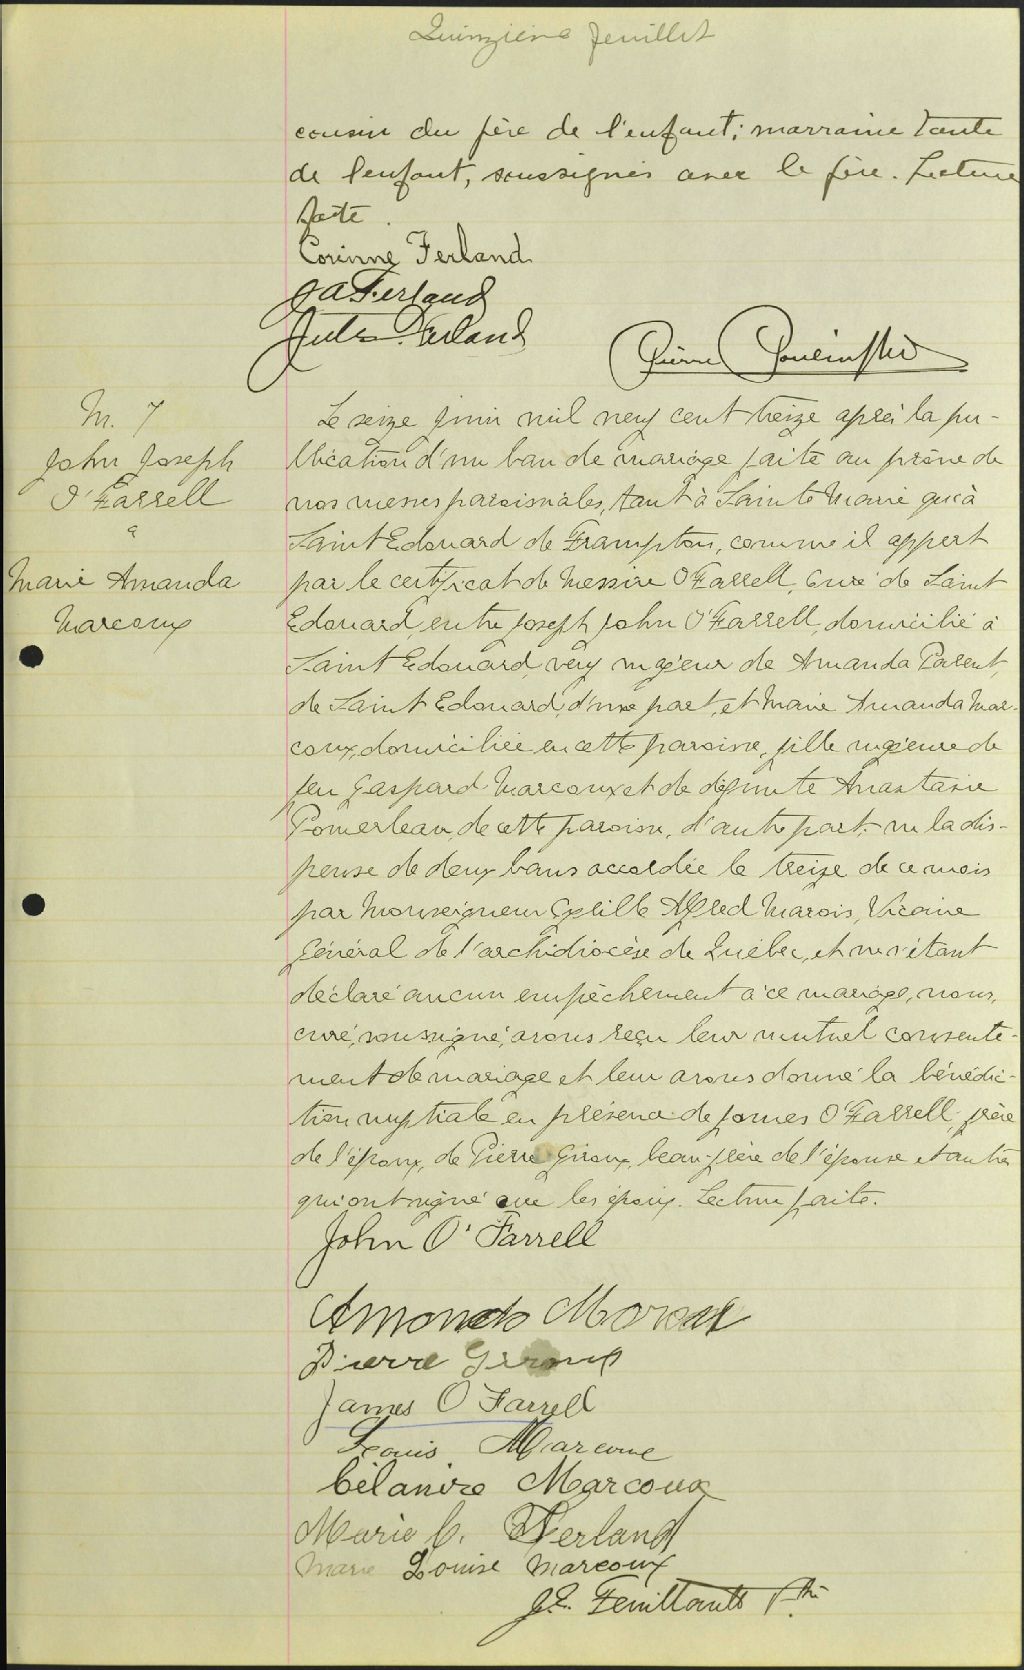 Quinzième feuillet
cousin du père de l'enfant; marraine tante
de l'enfant, soussignés avec le père. Lecture
faite.
Corinne Ferland
J A Ferland
Jules Ferland
Pierre Poulin Ptre
M. 7
John Joseph
O'Farrell
&
Marie Amanda
Marcoux
Le seize juin mil neuf cent treize après la pu-
blication d'un ban de mariage faite au prône de
nos messes paroissiales, tant à Sainte Marie qu'à
Saint Edouard de Frampton, comme il appert
par le certificat de Messire O'Farrell, curé de Saint
Edouard, entre Joseph John O'Farrell, domicilié à
Saint Edouard, veuf majeur de Amanda Parent,
de Saint Edouard, d'une part, et Marie Amanda Mar-
coux, domiciliée en cette paroisse, fille majeure de
feu Gaspard Marcoux et de défunte Anastasie
Pomerleau, de cette paroisse, d'autre part; vu la dis-
pense de deux bans accordée le treize de ce mois
par Monseigneur Cyrille Alfred Marois, Vicaire
Général de l'archidiocèse de Québec, et ne s'étant
déclaré aucun empêchement à ce mariage, nous,
curé, soussigné, avons reçu leur mutuel consente-
ment de mariage et leur avons donné la bénédic-
tion nuptiale en présence de James O'Farrell, frère
de l'époux, de Pierre Giroux, beau-frère de l'épouse et autres
qui ont signé avec les époux. Lecture faite.
John O'Farrell
Amanda Marcoux
Pierre Giroux
James O Farrell
Louis Marcoux
Célanire Marcoux
Marie C. Ferland
Marie Louise Marcoux
J. E. Feuiltault Ptre